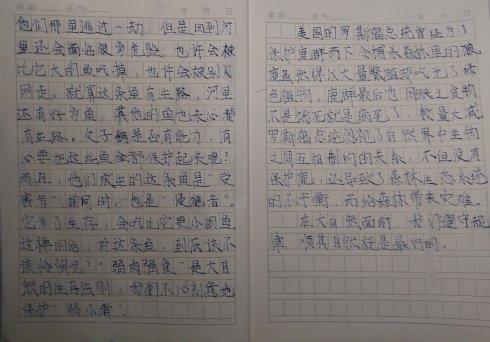 他们那里逃过一劫,但是回到河
里还会面临很多危险,也许会被
比它大的鱼吃掉,也许会被别人
网走。就算这条鱼有生路,河里
还有好多鱼,其他的鱼也未必都
有生路。父子俩是否有能力、有
必要把这些鱼全都保护起来呢?
而且,他们放生的这条鱼是“受
害者”的同时,也是“侵施者”。
它为了生存,会吃比它更小的鱼
这样的话,对这条鱼,到底该不
该怜悯呢?“弱肉强食”是大自
然的生存法则,我们不必刻意地
保护“弱小者”。
美国的罗斯福总统曾经为了
保护鹿群而下令捕杀森林里的狼
鹿虽然得以大量繁殖却吃光了绿
色植物,鹿群最后也因缺乏食物
不是饿死就是病死了,数量大减
罗斯福总统忽视了自然界中生物
之间互相制约的关系,不但没有
保护鹿,还导致了森林生态系统
的不平衡,而给森林带来灾难。
在大自然面前,我们遵守规
律,顺其自然就是最好的。